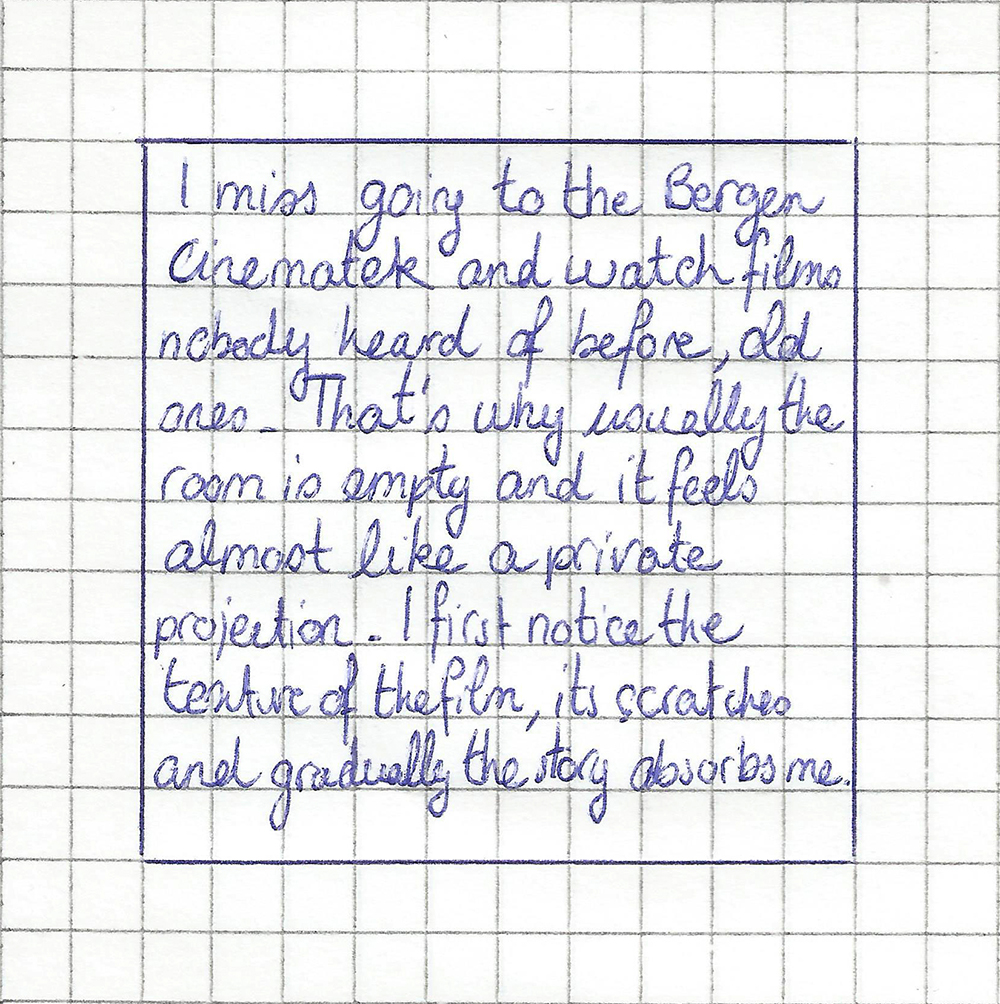 I miss going to the Bergen
Cinematek and watch films
nobody heard of before, old
ones. That's why usually the
room is empty and it feels
almost like a private
projection. I first notice the
texture of the film, its scratches
and gradually the story absorbs me.